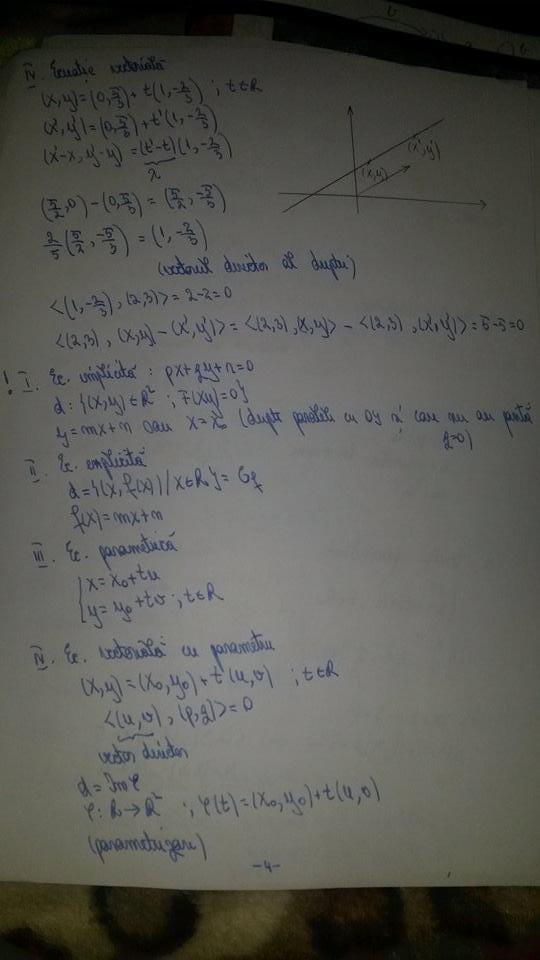 IV. Ecuație vectorială
(x,y)=(0,5/3)+t(1,-2/3) ; t∈R
(x',y')=(0,5/3)+t'(1,-2/3)
(x'-x, y'-y)=(t'-t)(1,-2/3)
λ
(x,y)
(x',y')
(5/2,0)-(0,5/3)=(5/2,-5/3)
2/5(5/2,-5/3)=(1,-2/3)
(vectorul director al dreptei)
<(1,-2/3),(2,3)>=2-2=0
<(2,3),(x,y)-(x',y')>=<(2,3),(x,y)>-<(2,3),(x',y')>=5-5=0
! I. Ec. implicită : px+qy+r=0
d:{(x,y)∈R² ; F(x,y)=0}
y=mx+n sau x=x₀ (drepte paralele cu OY și care nu au pantă
q=0)
II. Ec. explicită
d={(x,f(x))/x∈R}=Gf
f(x)=mx+n
III. Ec. parametrică
{x=x₀+tu
y=y₀+tv ; t∈R
IV. Ec. vectorială cu parametru
(x,y)=(x₀,y₀)+t(u,v) ; t∈R
<(u,v),(p,q)>=0
vector director
d=Imφ
φ:R→R² ; φ(t)=(x₀,y₀)+t(u,v)
(parametrizare)
-4-